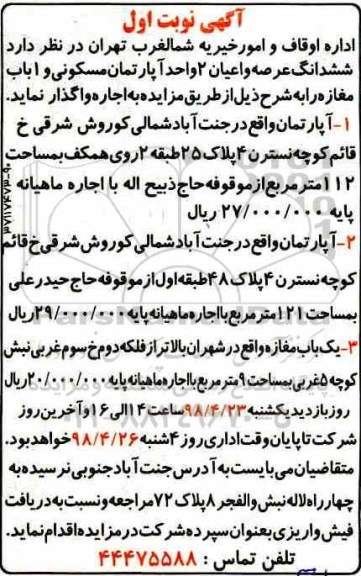 آگهی نوبت اول
اداره اوقاف و امور خیریه شمالغرب تهران در نظر دارد
ششدانگ عرصه واعیان ۲ واحد آپارتمان مسکونی و ۱ باب
مغازه رابه شرح ذیل از طریق مزایده به اجاره واگذار نماید.
۱- آپارتمان واقع در جنت آباد شمالی کوروش شرقی خ
قائم کوچه نسترن ۴ پلاک ۲۵ طبقه ۲ روی همکف بمساحت
۱۱۲ متر مربع از موقوفه حاج ذبیح اله با اجاره ماهیانه
پایه ۲۷/۰۰۰/۰۰۰ ریال
۲- آپارتمان واقع در جنت آباد شمالی کوروش شرقی خ قائم
کوچه نسترن ۴ پلاک ۴۸ طبقه اول از موقوفه حاج حیدرعلی
بمساحت ۱۲۱ متر مربع با اجاره ماهیانه پایه ۲۹/۰۰۰/۰۰۰ ریال
۳- یک باب مغازه واقع در شهران بالاتر از فلکه دوم خ سوم غربی نبش
کوچه ۵ غربی بمساحت ۹ متر مربع با اجاره ماهیانه پایه ۲۰/۰۰۰/۰۰۰ ریال
روز بازدید یکشنبه ۹۸/۴/۲۳ ساعت ۱۴ الی ۱۶ و آخرین روز
شرکت تا پایان وقت اداری روز ۴ شنبه ۹۸/۴/۲۶ خواهد بود.
متقاضیان می بایست به آدرس جنت آباد جنوبی نرسیده به
چهارراه لاله نبش والفجر ۸ پلاک ۷۲ مراجعه و نسبت به دریافت
فیش واریزی بعنوان سپرده شرکت در مزایده اقدام نماید.
تلفن تماس : ۴۴۴۷۵۵۸۸